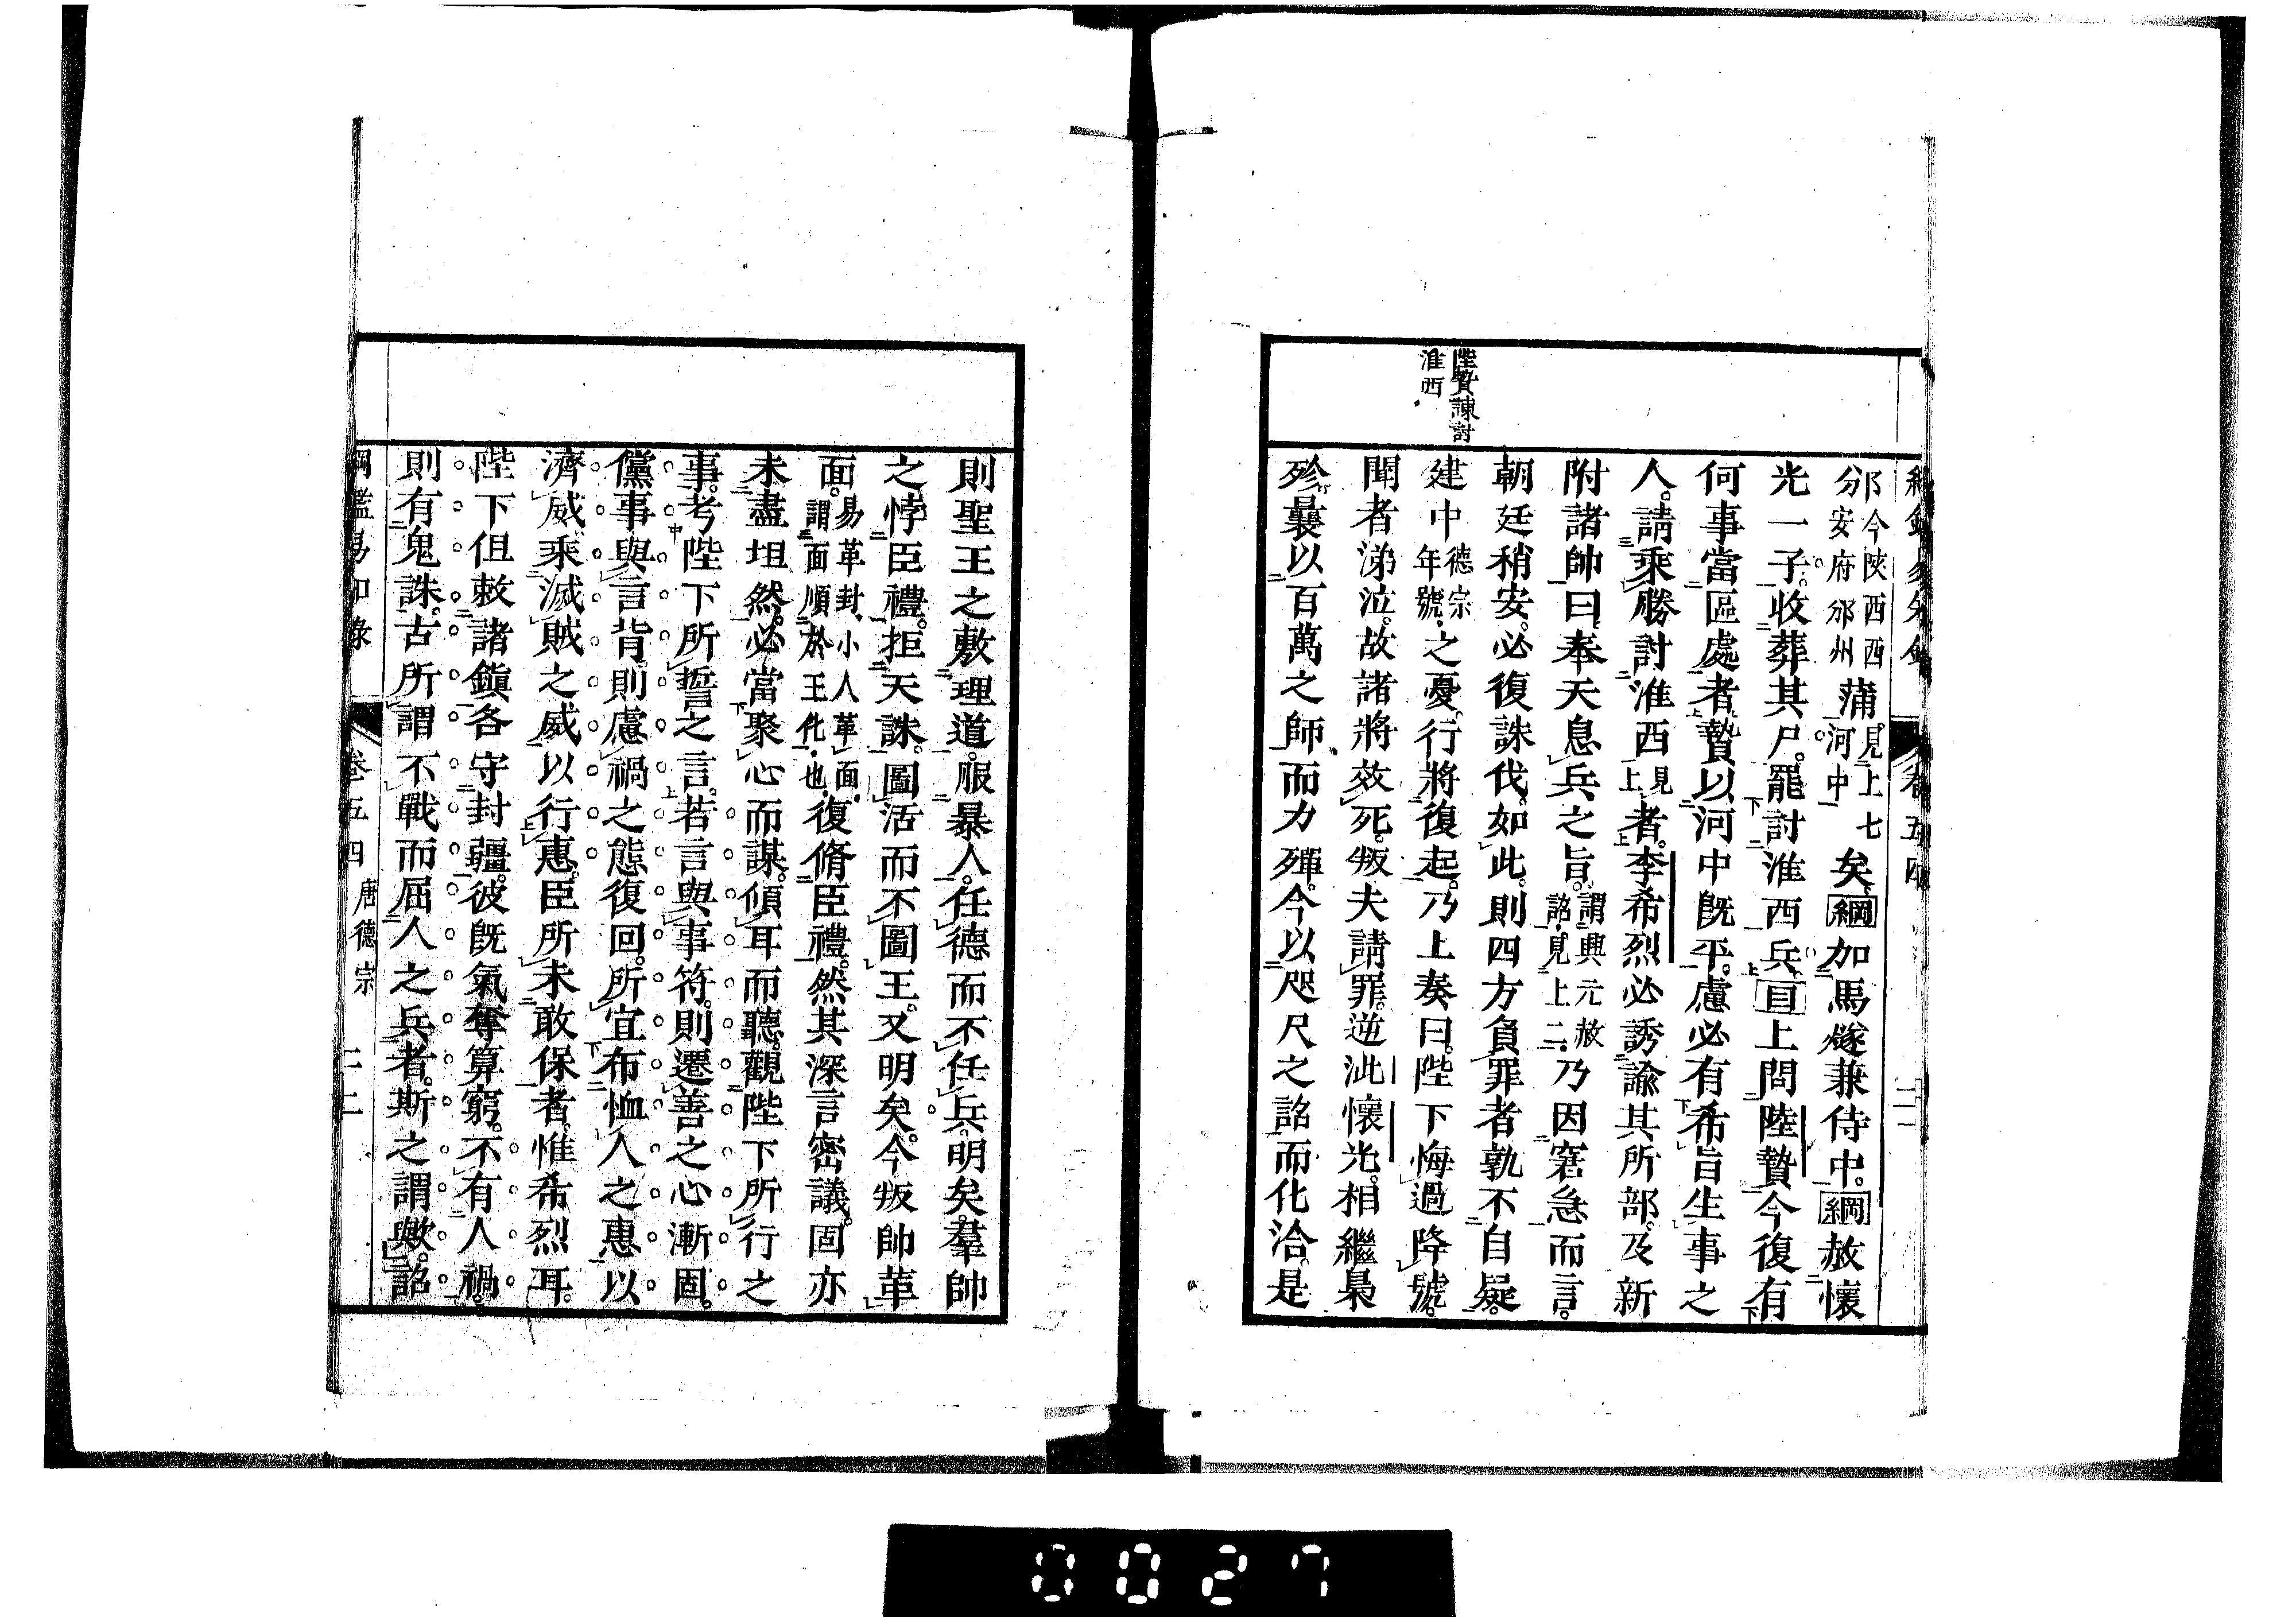 陸贄諫討
淮西
邠今陝西西
分安府邠州蒲見上七河中矣綱加馬燧兼侍中綱赦懷
光一子收葬其尸罷討淮西兵目上問陸贄今復有
何事當區處者贄以河中既平慮必有希旨生事之
人請乘勝討淮西見上者李希烈必誘諭其所部及新
附諸帥曰奉天息兵之旨謂興元赦詔見上二乃因窘急而言
朝廷稍安必復誅伐如此則四方負罪者孰不自疑
建中德宗年號之憂行將復起乃上奏曰陛下悔過降號
聞者涕泣故諸將效死叛夫請罪逆泚懷光相繼梟
殄曩以百萬之師而力殫今以咫尺之詔而化洽是
則聖王之敷理道服暴人任德而不任兵明矣羣帥
之悖臣禮拒天誅圖活而不圖王又明矣今叛帥革
面易革封小人革面謂面順於王化也復脩臣禮然其深言密議固亦
未盡坦然必當聚心而謀傾耳而聽觀陛下所行之
事考陛下所誓之言若言與事符則遷善之心漸固
儻事與言背則慮禍之態復回所宜布恤人之惠以
濟威乘滅賊之威以行惠臣所未敢保者惟希烈耳
陛下但敕諸鎭各守封疆彼既氣奪算窮不有人禍
則有鬼誅古所謂不戰而屈人之兵者斯之謂歟詔
綱鑑易知錄 卷五四 唐德宗 二二